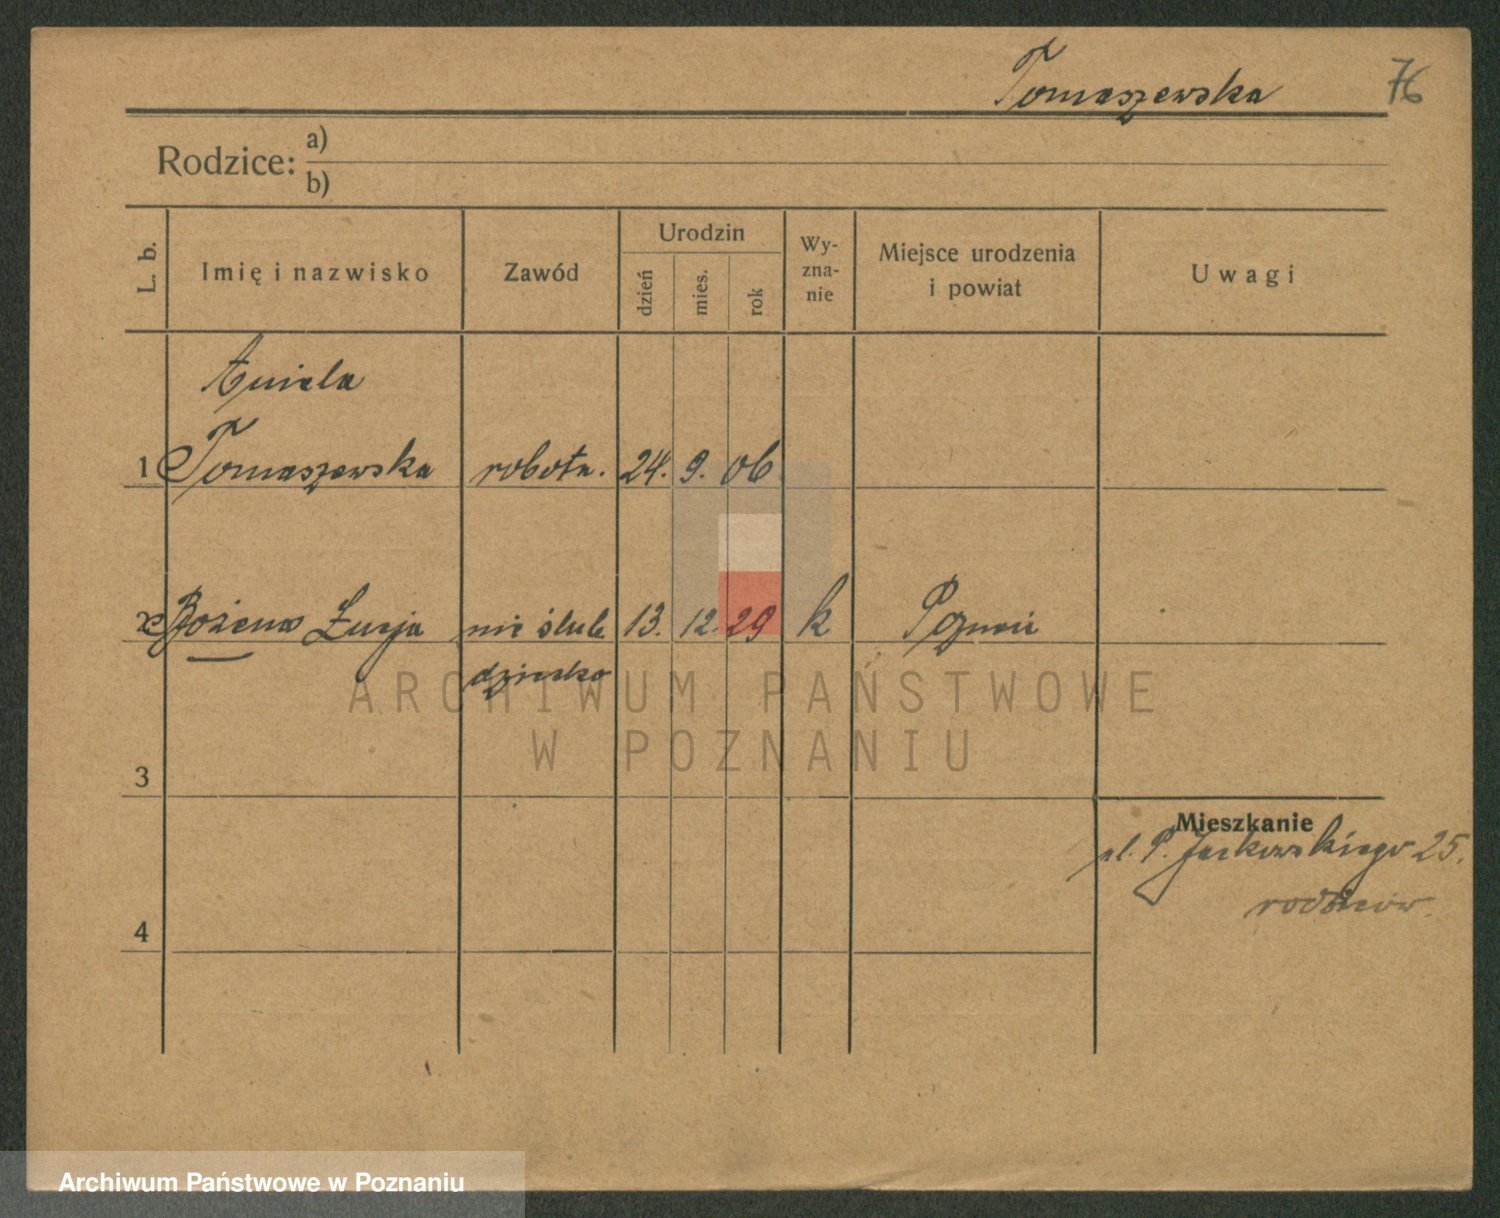 Tomaszewska 76
Rodzice: a)
b)
L. b. Imię i nazwisko Zawód Urodzin dzień mies. rok Wy-zna-nie Miejsce urodzenia i powiat Uwagi
Aniela
1 Tomaszewska robotn. 24. 9. 06
2 Bożena Łucja nie ślub 13. 12. 29 k Poznań
dziecko
ARCHIWUM PAŃSTWOWE
W POZNANIU
3
Mieszkanie
P. Jackowskiego 25.
rodziców
4
Archiwum Państwowe w Poznaniu